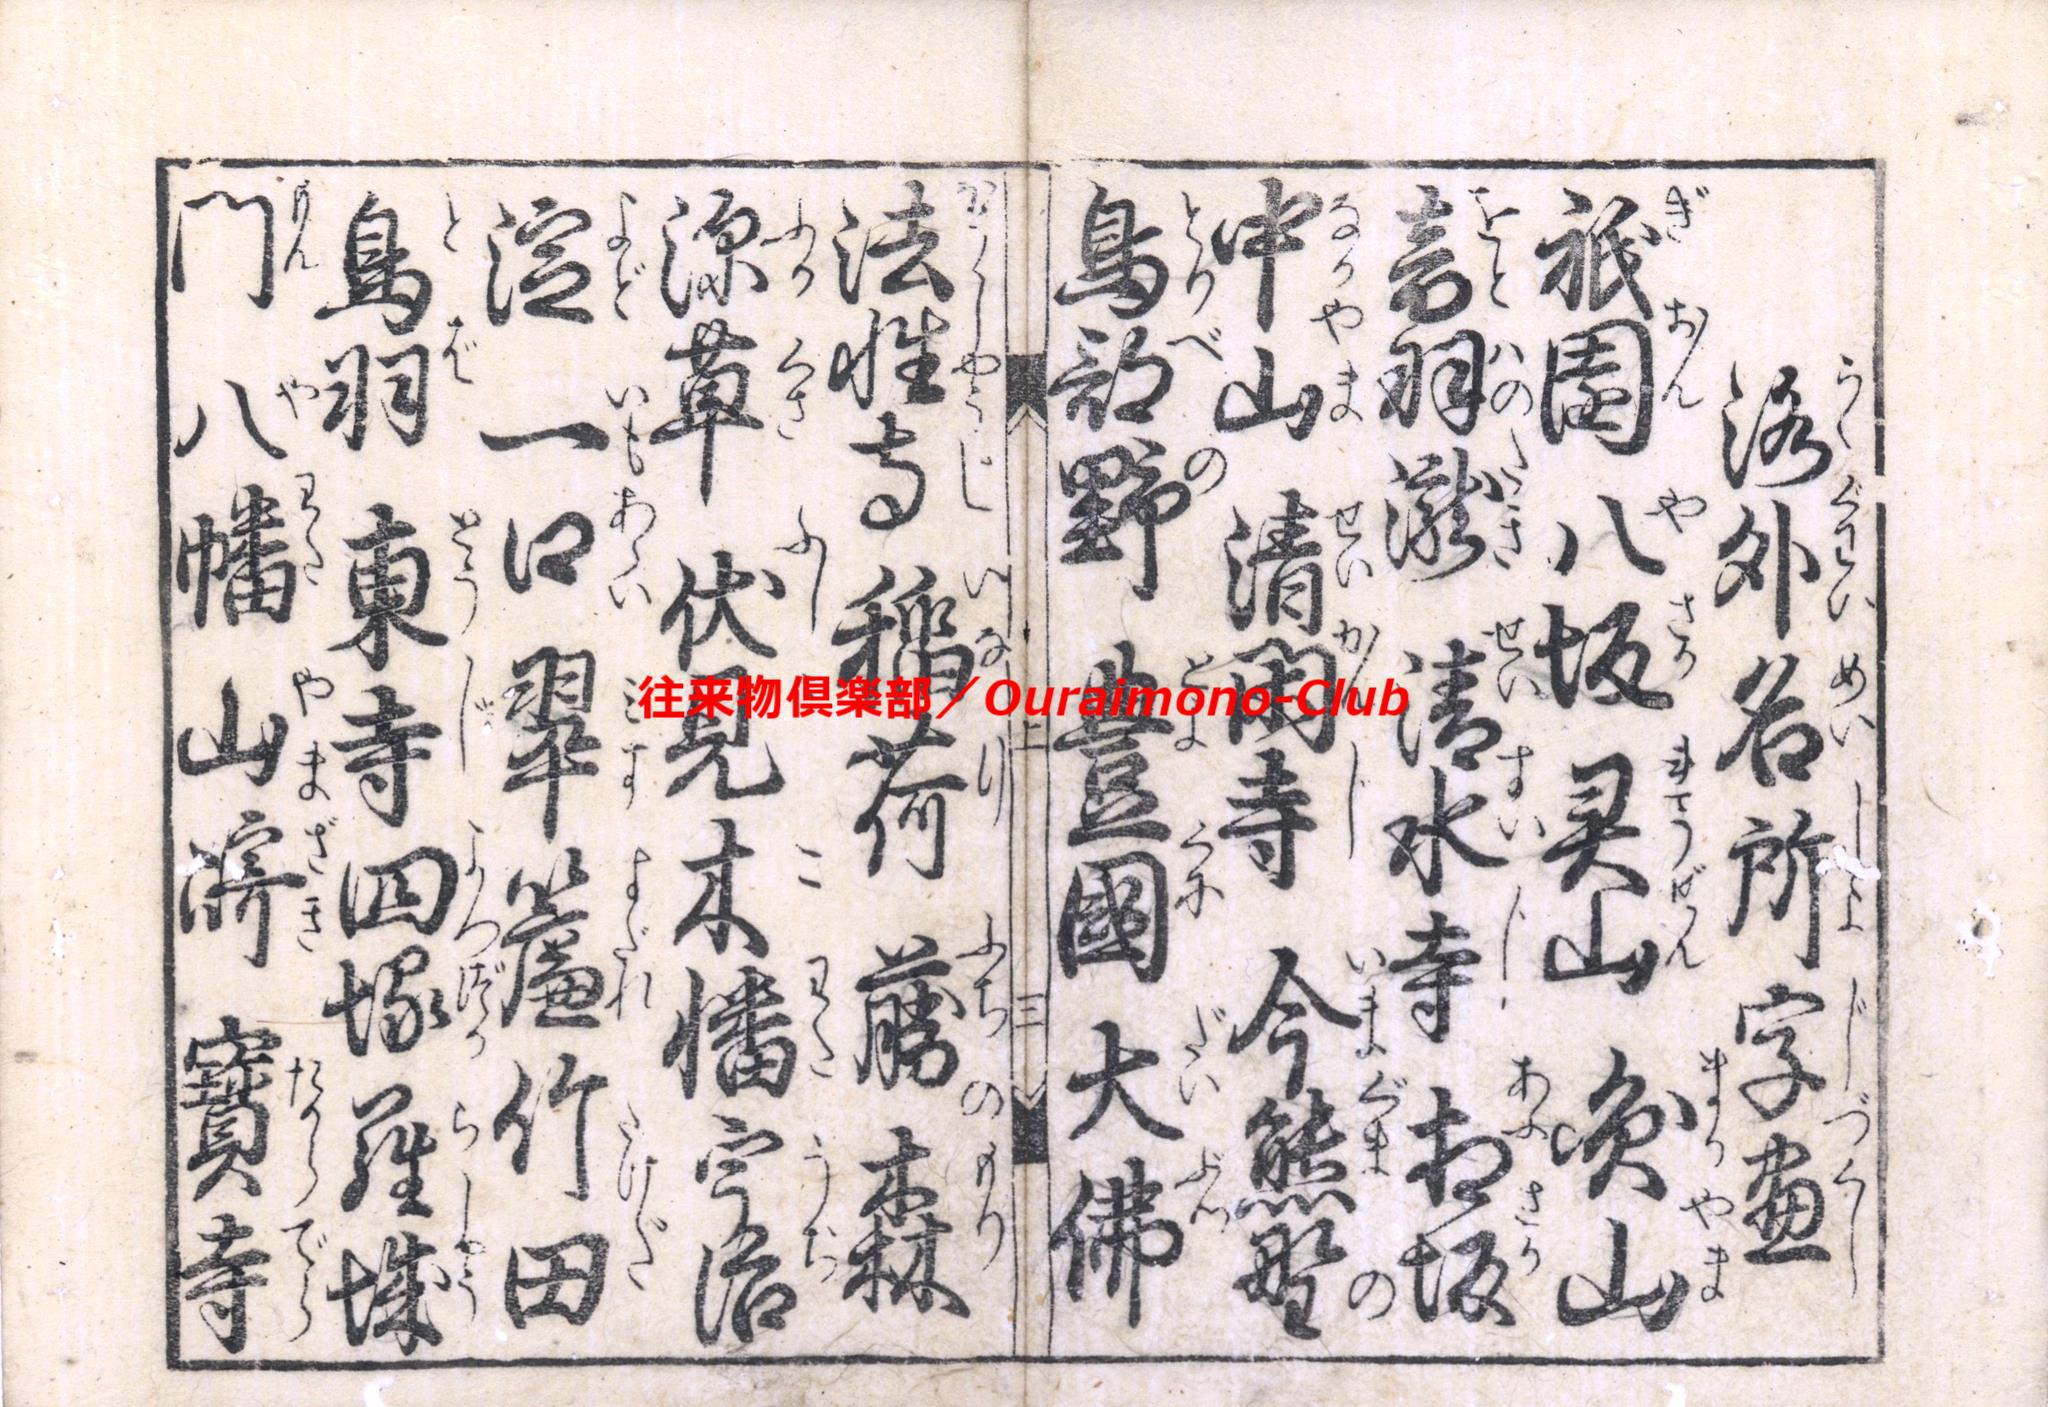 洛外名所字盡
らくぐわいめいしよじづくし
祇園 八坂 灵山 丸山
ぎおん やさか れうぜん まるやま
音羽瀧 清水寺 相坂
をとはのたき せいすいじ あふさか
中山 清閑寺 今熊野
なかやま せいかんじ いまぐまの
鳥部野 豊國 大佛
とりべの とよくに だいぶつ
上 三
法性寺 稲荷 藤森
ほうしやうじ いなり ふぢのもり
深草 伏見 木幡 宇治
ふかくさ ふしみ こわた うぢ
淀 一口 翠簾 竹田
よど いもあらい みす すだれ たけだ
鳥羽 東寺 四塚 羅城
とば とうじ よつづか らしやう
門 八幡 山崎 寶寺
もん やわた やまざき たからでら
往来物倶楽部／Ouraimono-Club